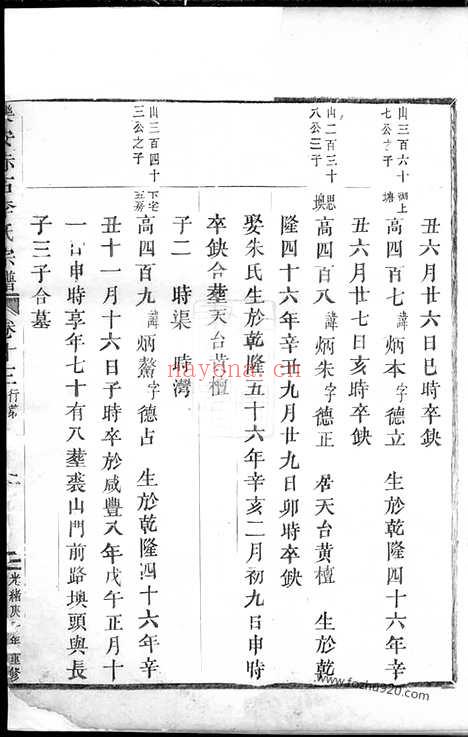 丑六月廿六日巳時卒缺
山三百六十七公之子
湖上塘
高四百七 諱炳本字德立 生於乾隆四十六年辛
丑六月廿七日亥時卒缺
山二百三十八公三子
思墺
高四百八 諱炳朱字德正 居天台黃檀 生於乾
隆四十六年辛丑九月廿九日卯時卒缺
娶朱氏生於乾隆五十六年辛亥二月初九日申時
卒缺合塟天台黃檀
子二 時渠 時灣
山三百四十三公之子
下宅五房
高四百九 諱炳鰲字德占 生於乾隆四十六年辛
丑十一月十六日子時卒於咸豐八年戊午正月十
一日申時享年七十有八塟裘山門前路墺頭與長
子三子合墓
李氏宗譜
卷十三 行第
光緒庚 年重修
nayona.cn
www.fozhu920.com